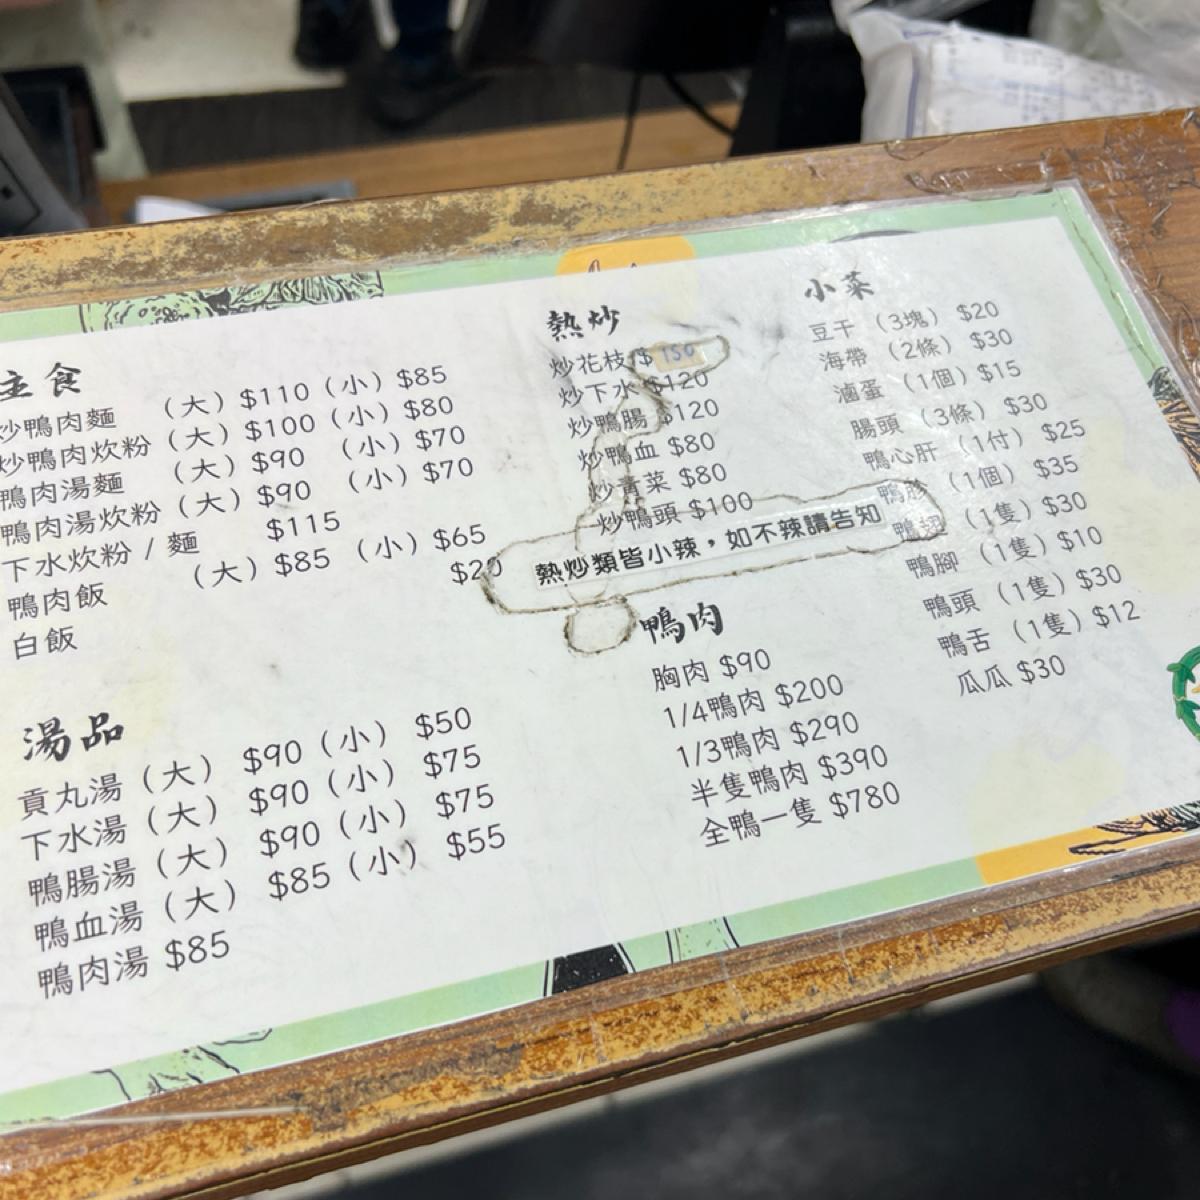 主食
炒鴨肉麵 （大）$110（小）$85
炒鴨肉炊粉（大）$100（小）$80
鴨肉湯麵 （大）$90 （小）$70
鴨肉湯炊粉（大）$90 （小）$70
下水炊粉 / 麵 $115
鴨肉飯 （大）$85（小）$65
白飯 $20
湯品
貢丸湯（大） $90（小） $50
下水湯（大） $90（小） $75
鴨腸湯（大） $90（小） $75
鴨血湯（大） $85（小） $55
鴨肉湯 $85
熱炒
炒花枝 $150
炒下水 $120
炒鴨腸 $120
炒鴨血 $80
炒青菜 $80
炒鴨頭 $100
熱炒類皆小辣，如不辣請告知
鴨肉
胸肉 $90
1/4鴨肉 $200
1/3鴨肉 $290
半隻鴨肉 $390
全鴨一隻 $780
小菜
豆干（3塊）$20
海帶（2條）$30
滷蛋（1個）$15
腸頭（3條）$30
鴨心肝（1付）$25
鴨（1個）$35
鴨翅（1隻）$30
鴨腳（1隻）$10
鴨頭（1隻）$30
鴨舌（1隻）$12
瓜瓜 $30